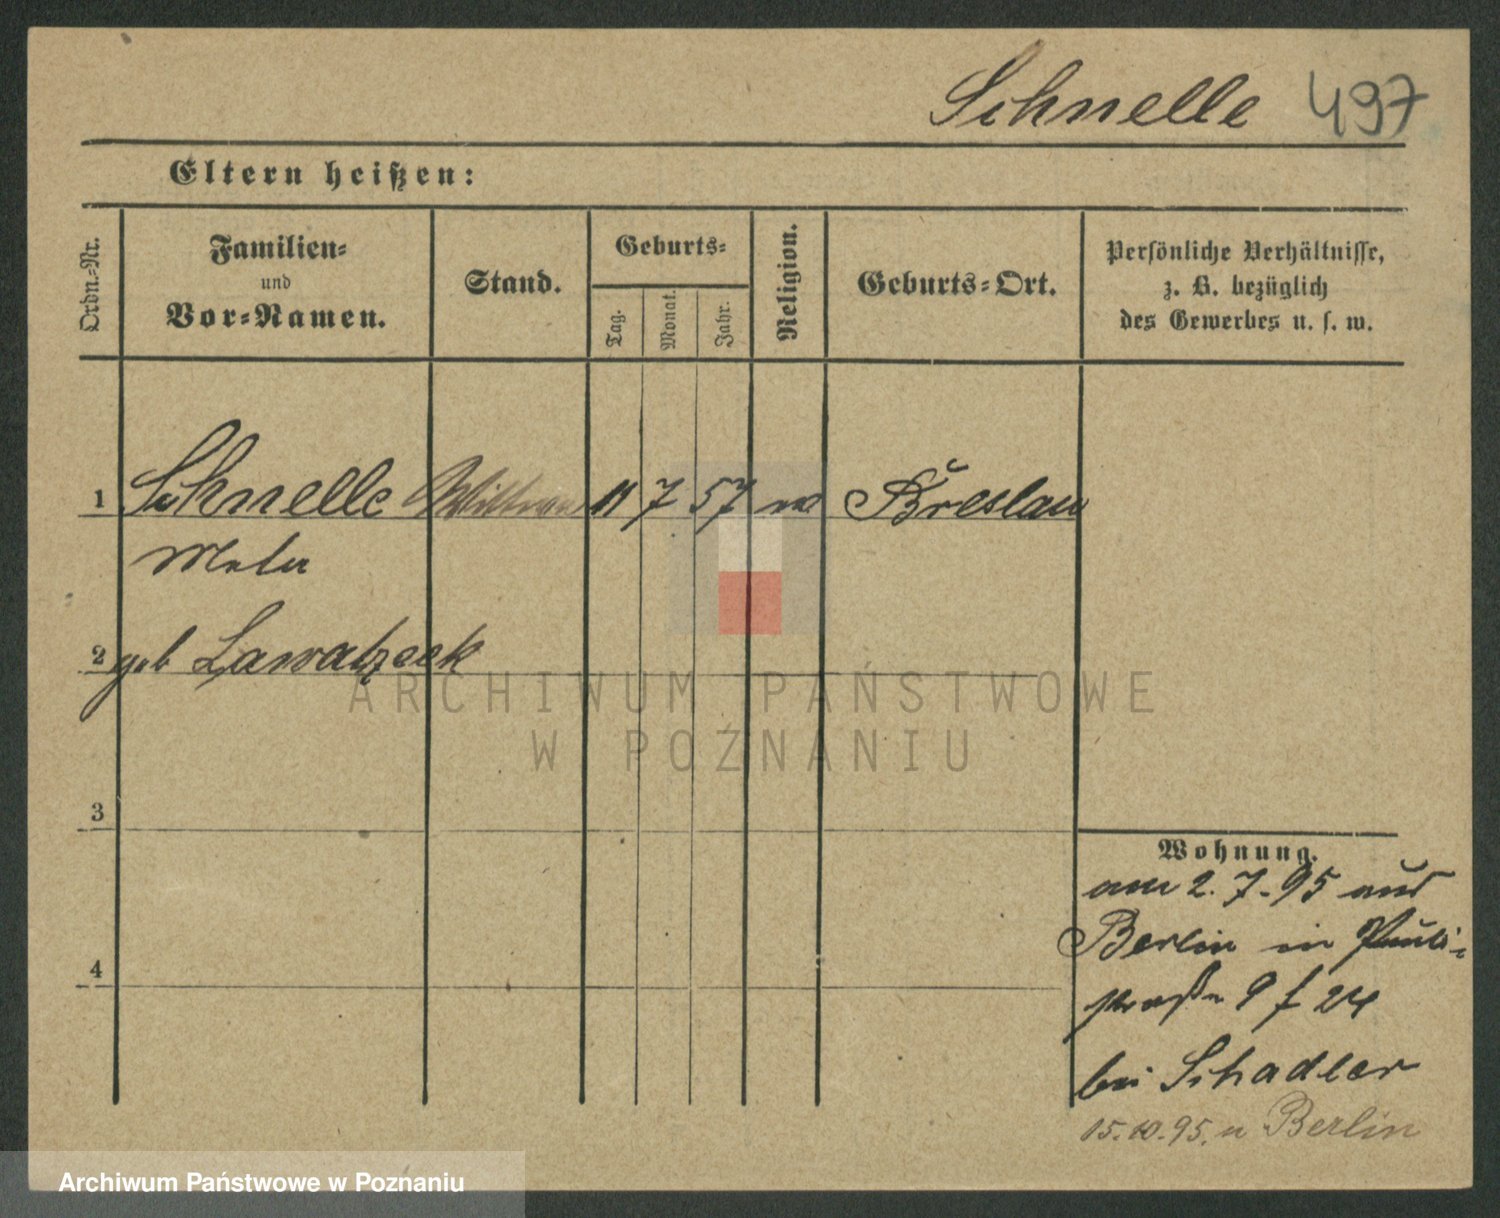 Schnelle 497
Eltern heißen:
Ordn.-Nr.
Familien-
und
Vor-Namen.
Stand.
Geburts-
Tag.
Monat.
Jahr.
Religion.
Geburts-Ort.
Persönliche Verhältnisse,
z. B. bezüglich
des Gewerbes u. s. w.
1 Schnelle 11 7 57 Breslau
Meta
2 geb Lawatzeck
ARCHIWUM PAŃSTWOWE
W POZNANIU
3
Wohnung.
am 2.7.95 aus
Berlin in Pauli-
straße 9 f 24
4
bei Schadler
15.10.95. n Berlin
Archiwum Państwowe w Poznaniu